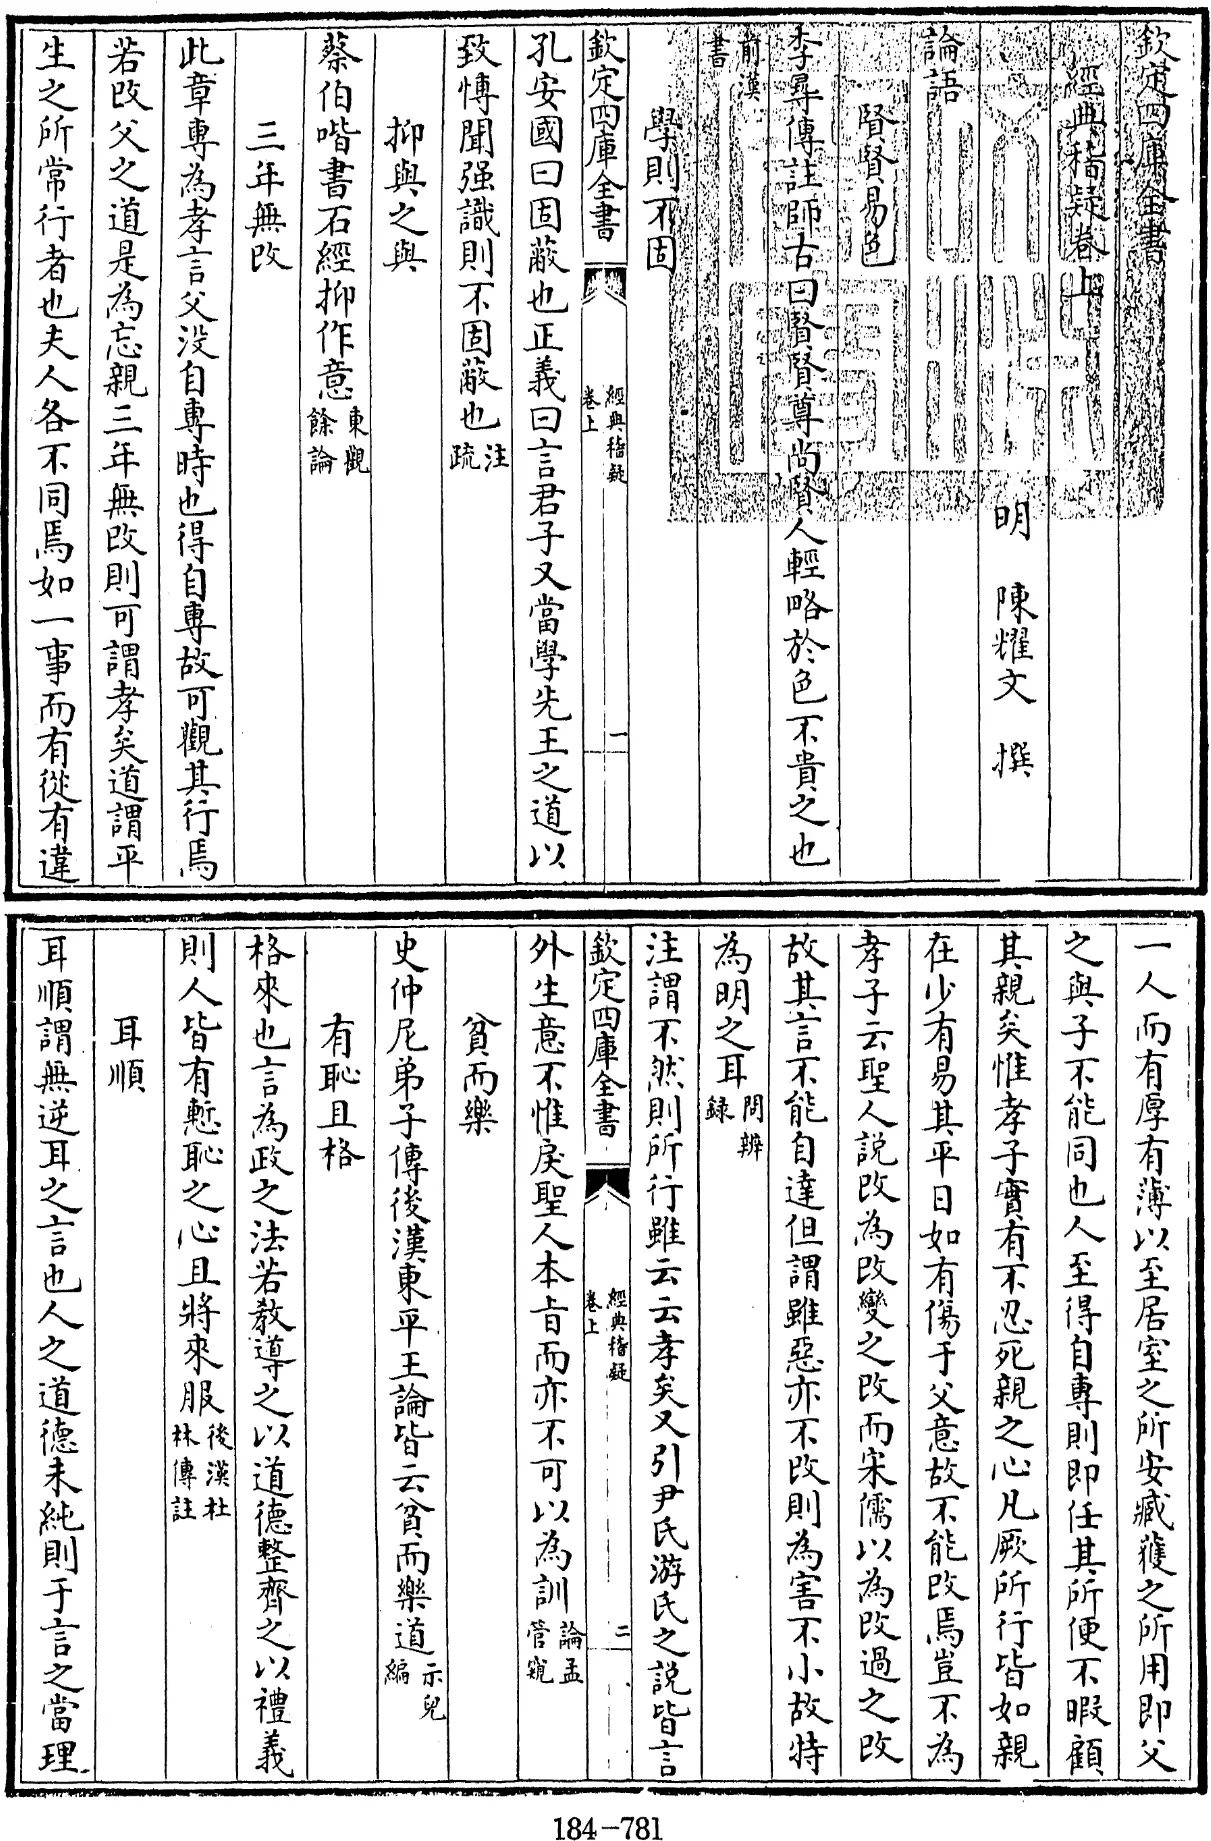 欽定四庫全書
經典稽疑卷上
明 陳耀文 撰
論語
賢賢易色
李尋傳註師古曰賢賢尊尚賢人輕略於色不貴之也
前漢
書
學則不固
欽定四庫全書
經典稽疑
卷上
一
孔安國曰固蔽也正義曰言君子又當學先王之道以
致博聞强識則不固蔽也注
疏
抑與之與
蔡伯喈書石經抑作意東觀
餘論
三年無改
此章專為孝言父没自專時也得自專故可觀其行焉
若改父之道是為忘親三年無改則可謂孝矣道謂平
生之所常行者也夫人各不同焉如一事而有從有違
一人而有厚有薄以至居室之所安臧獲之所用即父
之與子不能同也人至得自專則即任其所便不暇顧
其親矣惟孝子實有不忍死親之心凡厥所行皆如親
在少有易其平日如有傷于父意故不能改焉豈不為
孝子云聖人說改為改變之改而宋儒以為改過之改
故其言不能自達但謂雖惡亦不改則為害不小故特
為明之耳問辨
録
注謂不然則所行雖云云孝矣又引尹氏游氏之說皆言
欽定四庫全書
經典稽疑
卷上
二
外生意不惟戾聖人本旨而亦不可以為訓論孟
管窺
貧而樂
史仲尼弟子傳後漢東平王論皆云貧而樂道示兒
編
有恥且格
格來也言為政之法若教導之以道德整齊之以禮義
則人皆有慙恥之心且將來服後漢杜
林傳註
耳順
耳順謂無逆耳之言也人之道德未純則于言之當理
184-781